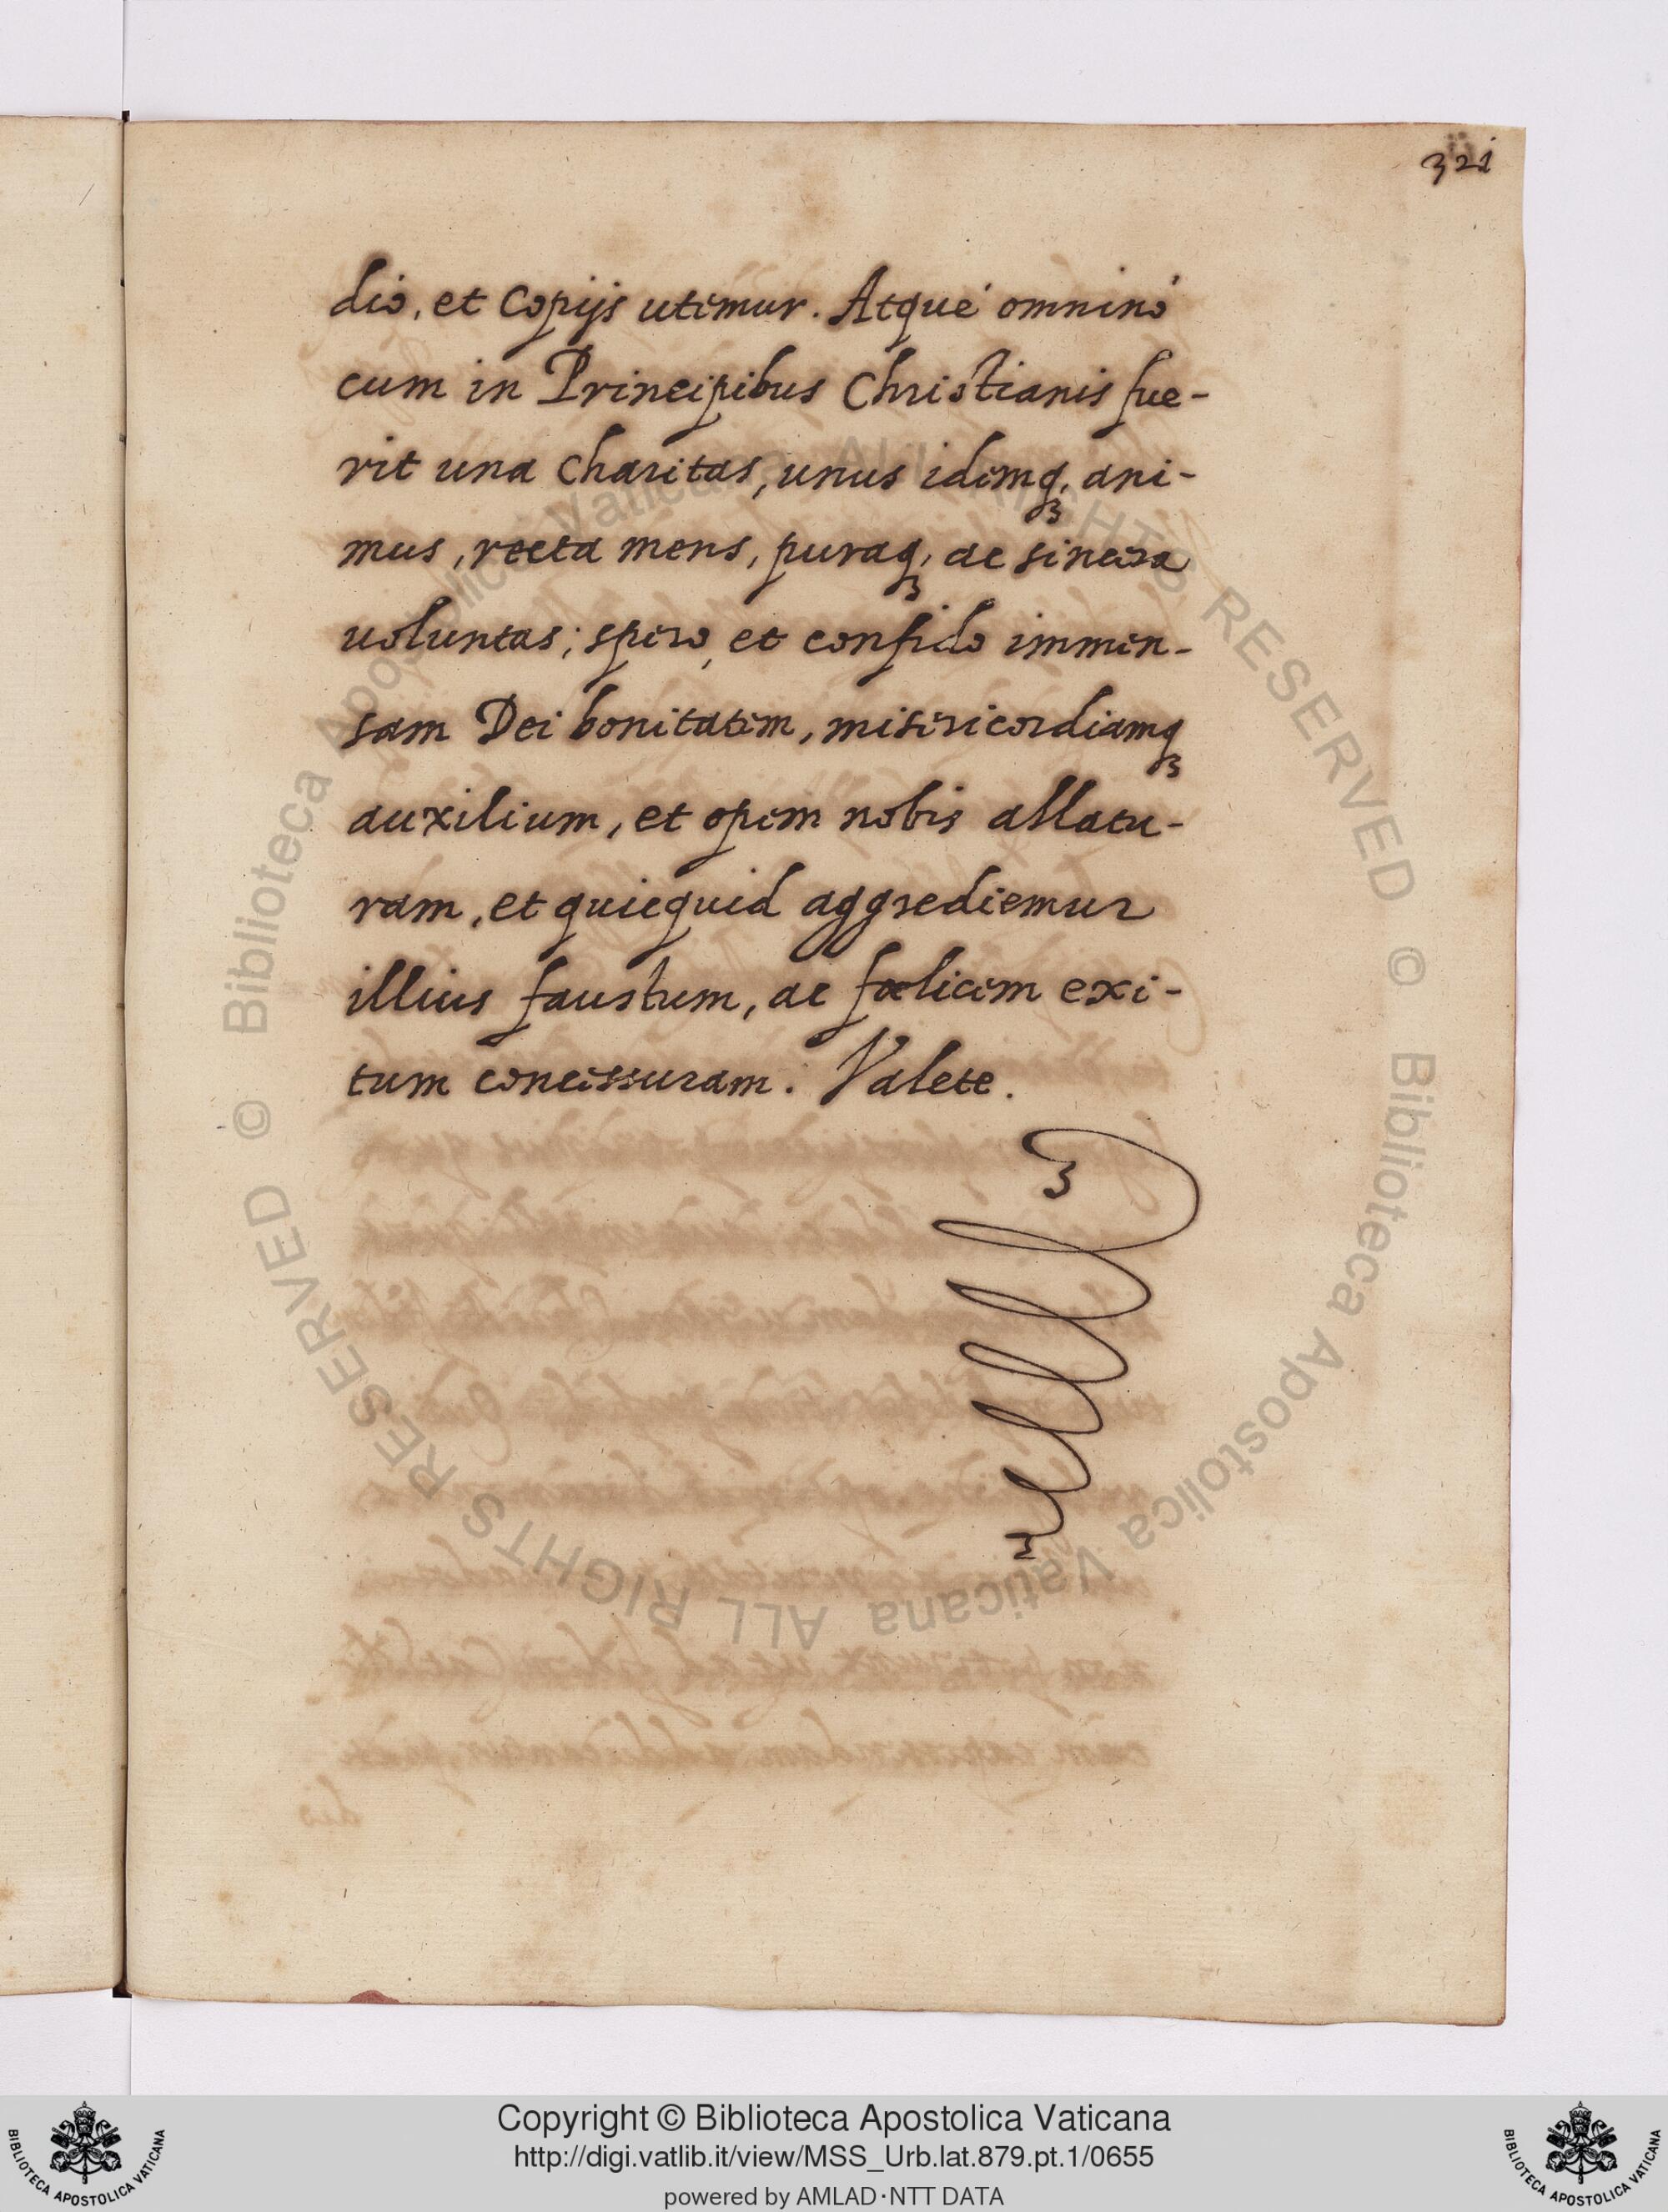 321
dio, et Copijs utemur. Atque' omnino'
cum in Principibus Christianis fue-
rit una Charitas, unus idemq; ani-
mus, recta mens, puraq; ac sincera
uoluntas; spero, et confido immen-
sam Dei bonitatem, misericordiamq;
auxilium, et opem nobis allatu-
ram, et quicquid aggrediemur
illius faustum, ac fœlicem exi-
tum concessuram. Valete.
© Biblioteca Apostolica Vaticana ALL RIGHTS RESERVED
© Biblioteca Apostolica Vaticana ALL RIGHTS RESERVED
Copyright © Biblioteca Apostolica Vaticana
http://digi.vatlib.it/view/MSS_Urb.lat.879.pt.1/0655
powered by AMLAD·NTT DATA
BIBLIOTECA APOSTOLICA VATICANA
BIBLIOTECA APOSTOLICA VATICANA